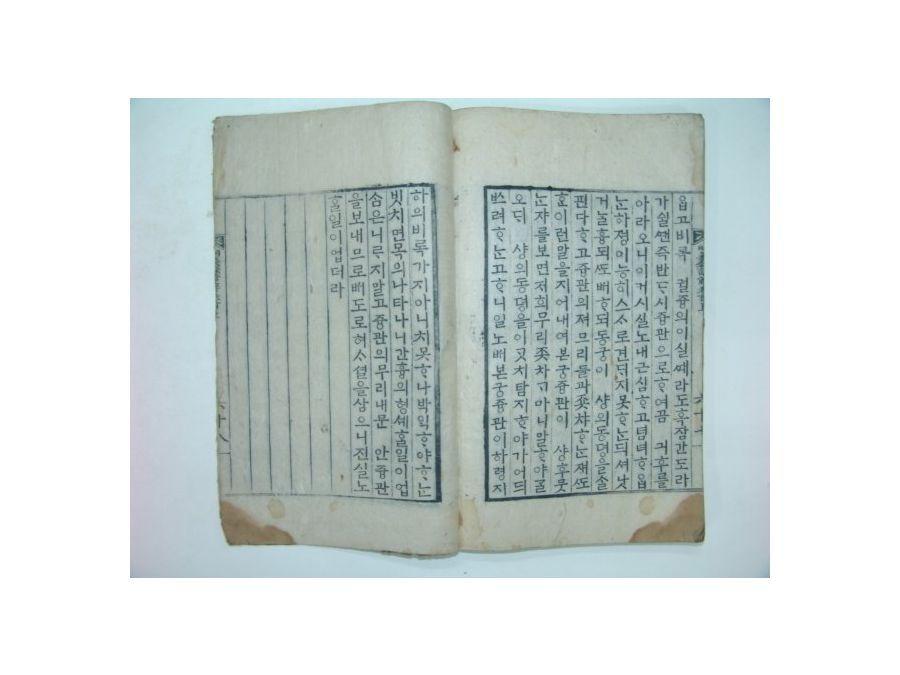 읍고비록 궐즁의이실ᄯᅢ라도혹잠간도라
가쉴ᄯᅢᆫ즉반ᄃᆞ시즁관으로ᄒᆞ여곰 긔후를
아라오니이거시실노내근심ᄒᆞ고념녀ᄒᆞ읍
ᄂᆞᆫ하졍이능히스ᄉᆞ로견ᄃᆡ지못ᄒᆞᄂᆞᆫ듸셔낫
거ᄂᆞᆯ흉되ᄯᅩᄡᅥᄒᆞ되동궁이 샹의동뎡을ᄉᆞᆯ
핀다ᄒᆞ고즁관의져므리들과ᄒᆞᄂᆞᆫ재ᄯᅩ
ᄒᆞᆫ이런말을지어내여본궁즁관이 샹후뭇
ᄂᆞᆫ쟈를보면저희무리마니말ᄒᆞ야ᄀᆞᆯ
오ᄃᆡ 샹의동뎡을이ᄀᆞᆺ치탐지ᄒᆞ야가어듸
ᄡᅳ려ᄒᆞᄂᆞᆫ고ᄒᆞ니일노ᄡᅥ본궁즁관이하령지
하의비록가지아니치못ᄒᆞ나박ᄋᆡᆨᄒᆞ야ᄒᆞᄂᆞᆫ
빗치면목의나타나니간흉의형셰ᄒᆞᆯ일이업
ᄉᆞᆷ은니ᄅᆞ지말고즁관의무리내문 안즁관
을보내므로ᄡᅥ도로혀ᄉᆞ셜을삼으니진실노
ᄒᆞᆯ일이업더라
六十八